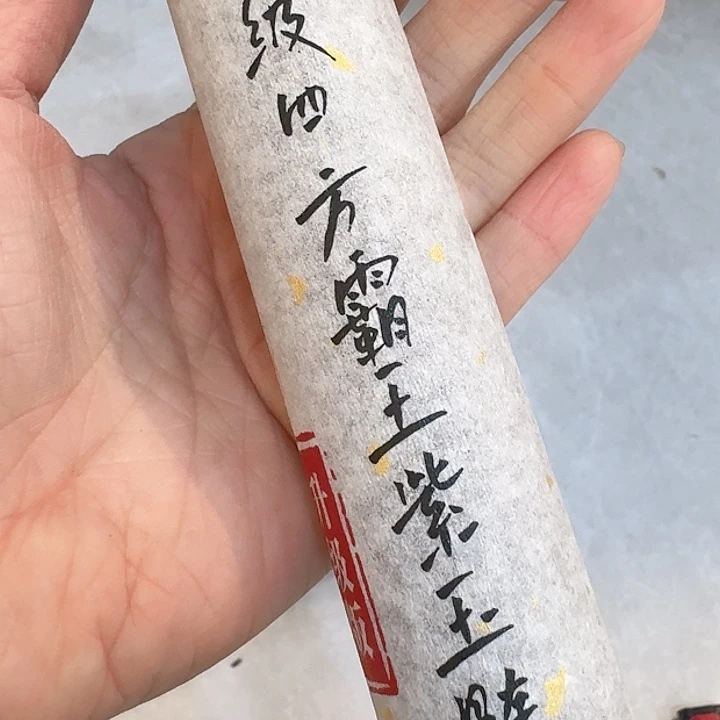 级四方霸王紫玉
升级版